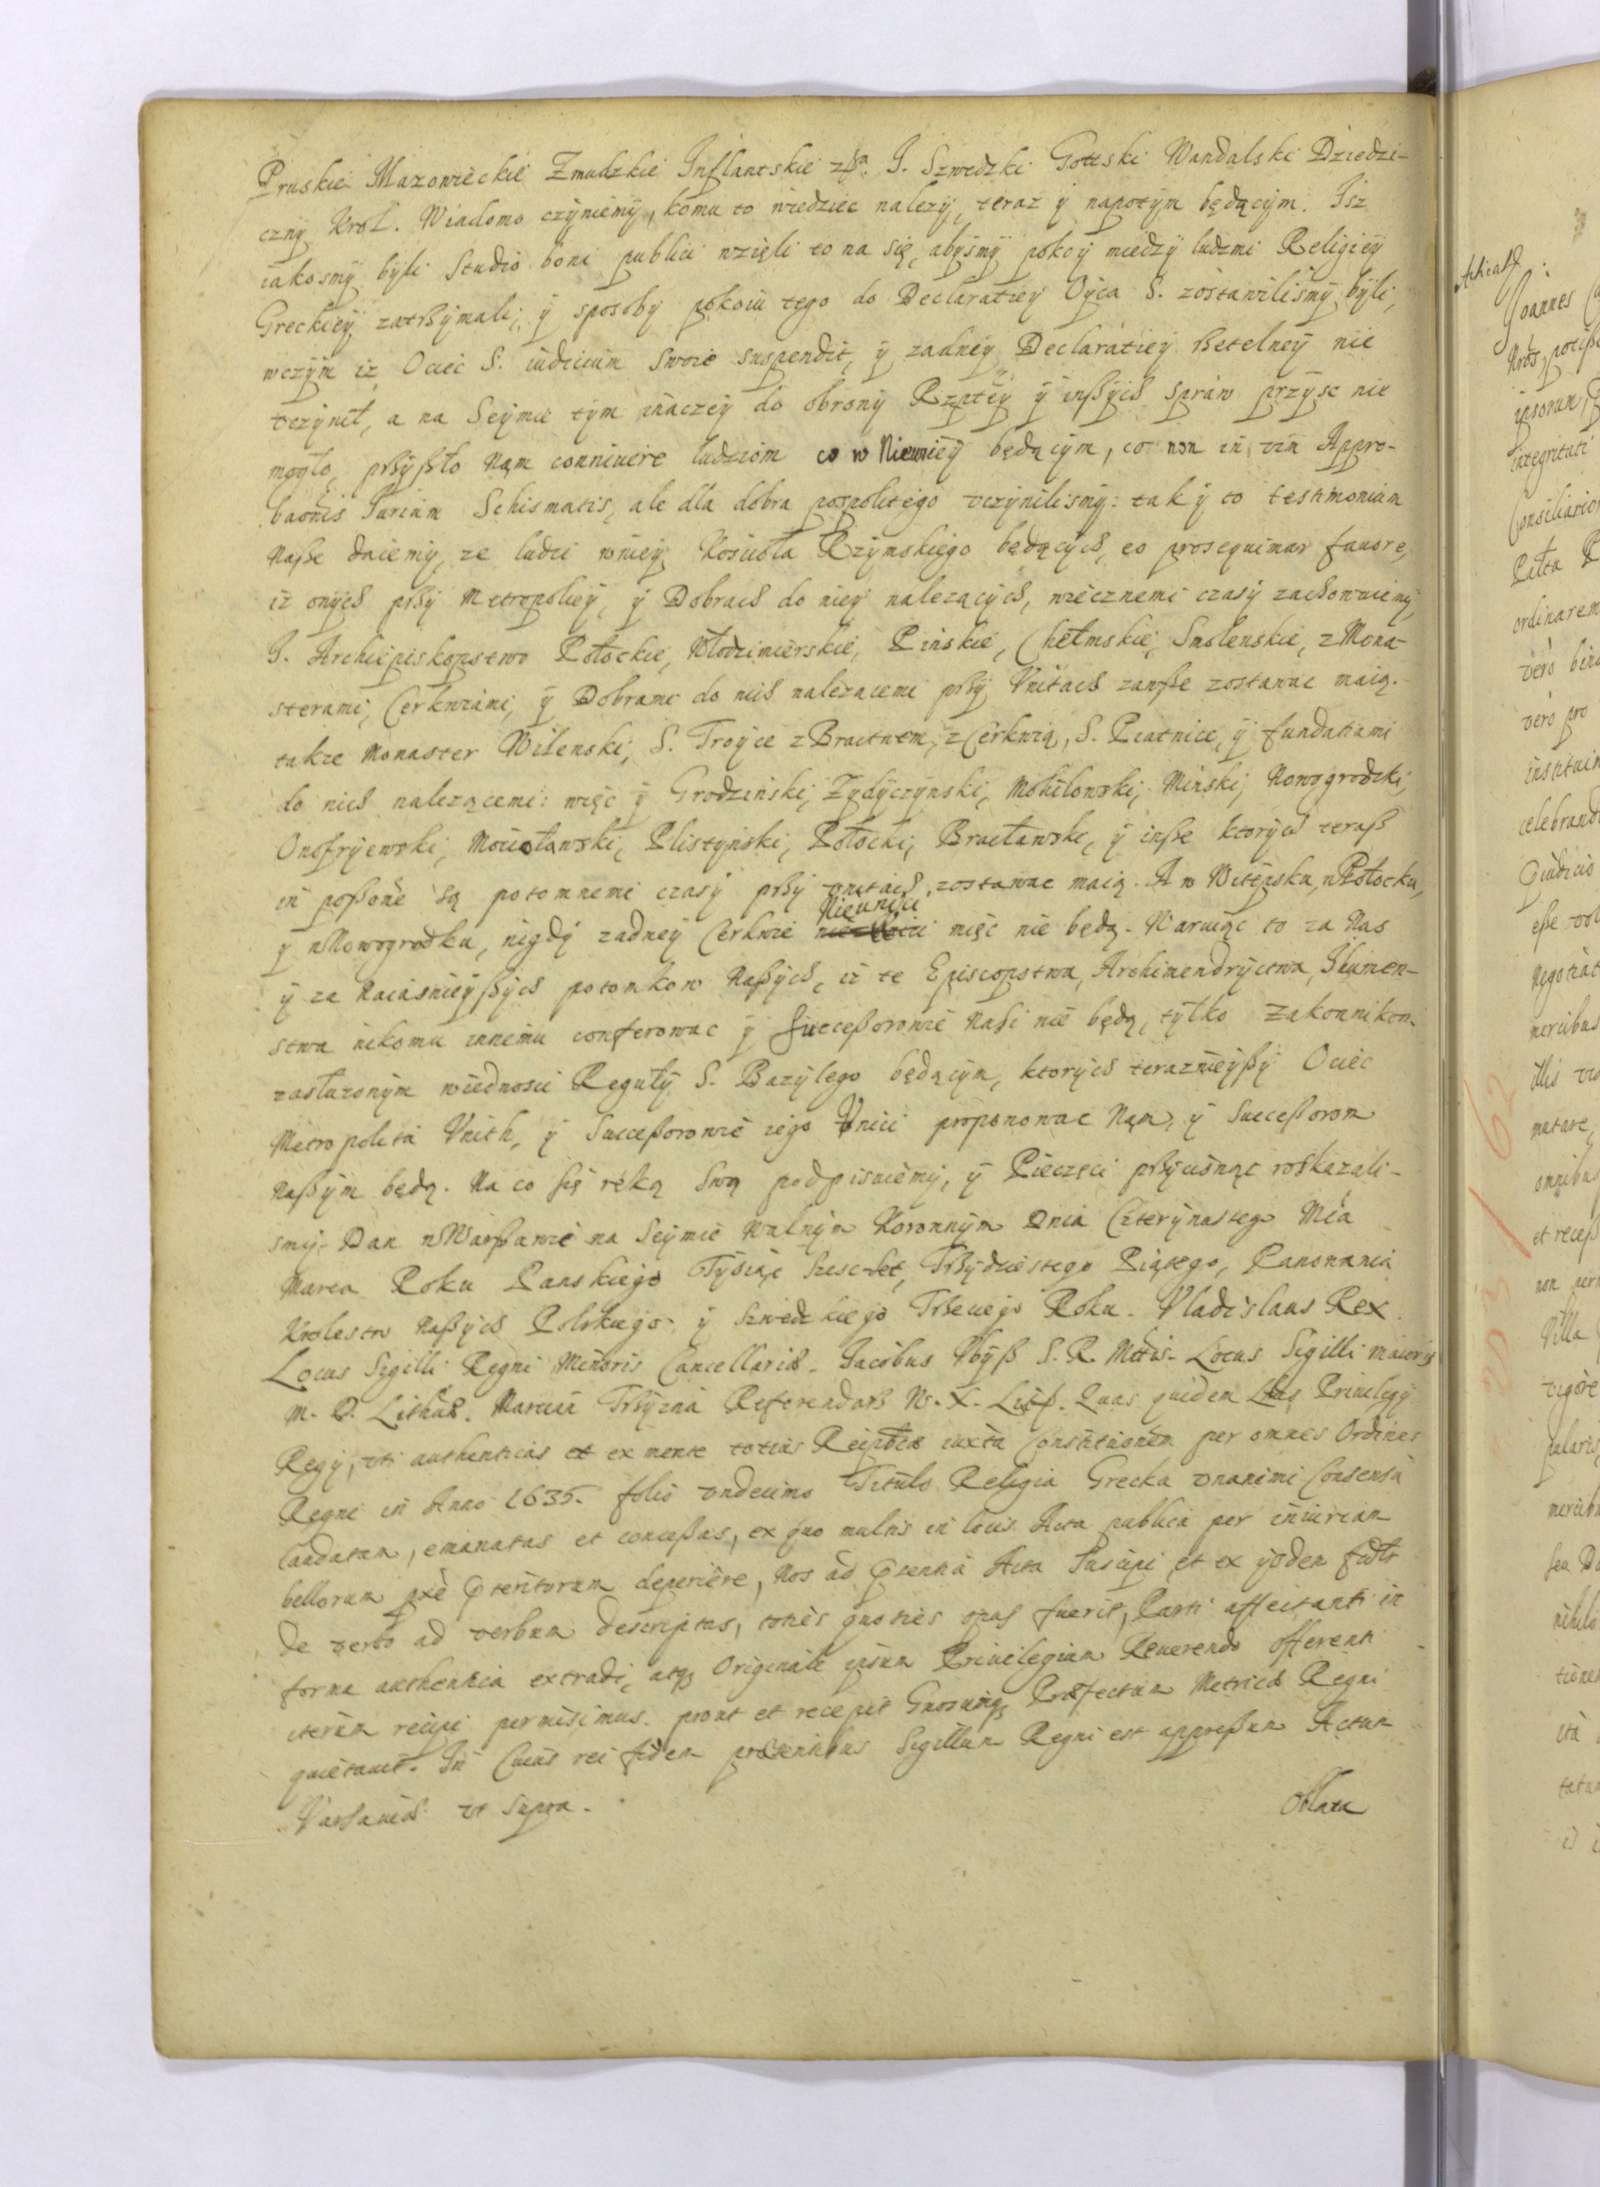 Pruskie Mazowieckie Zmudzkie Inflantskie J. Szwedzki Gottski Wandalski Dziedzi-
czny Krol. Wiadomo czyniemy, komu to wiedziec nalezy, teraz y napotym będącym. Isz
iakosmy byli studio boni publici wzięli to na się, abysmy pokoy miedzy ludzmi Religiey
Greckiey zatrßymali, y sposoby pokoiu tego do Declaratiey Oyca S. zostawilismy byli,
wczym iz Ociec S. iudicium swoie suspendit, y zadney Declaratiey rßetelney nie
vczynił, a na Seymie tym inaczey do obrony Rzptey y inßych spraw przysc nie
mogło, prßyßło Nam conniuere ludziom co w Nieuniey będącym, co non in vim Appro-
baonis Iurium Schismatis, ale dla dobra pospolitego vczynilismy: tak y to testimonium
Naßse daiemy, ze ludzi wniey Koscioła Rzymskiego będących, eo prosequimur fauore,
iz onych prßy Metropoliey, y Dobrach do niey nalezących, wiecznemi czasy zachowuiemy,
J. Archiepiskopstwo Połockie, Włodzimierskie, Pinskie, Chełmskie, Smolenskie, z Mona-
sterami, Cerkwiami, y Dobrami do nich nalezacemi prßy Vnitach zawße zostawac maią.
takze Monaster Wilenski, S. Troyce z Bractwem, z Cerkwią, S. Piatnice, y fundatiami
do nich nalezącemi: więc y Grodzinski, Zydyczynski, Mohilowski, Minski, Nowogrodzki,
Onofryewski, Mscisławski, Plistynski, Połocki, Bracławski, y inße ktorych teraß
in poßone są potomnemi czasy prßy vnitach zostawac maią. A w Witepsku, w Połocku,
y w Nowogrodku, nigdy zadney Cerkwie Nieunici miec nie będą. Waruiąc to za Nas
y za Naiasnieyßych potomkow Naßych, iz te Episcopstwa, Archimendryctwa, Ihumen-
stwa nikomu innemu conferowac y Succeßorowie Naßi nie będą, tylko Zakonnikom
zasłuzonym wiednosci Reguły S. Bazylego będącym, ktorych terazniejßy Ociec
Metropolita Vnith, y Succeßorowie iego Vnici proponowac Nam, y Succeßorom
Naßym będą. Na co się ręką swą podpisuiemy, y Pieczęci prßycisnąc roskazali-
smy. Dan w Warßawie na Seymie Walnym Koronnym Dnia Czterynastego Mca
Marca Roku Panskiego Tysiąc szesc set, Trßydziestego Piątego, Panowania
Krolestw Naßych Polskiego y Szwedzkiego Trßeciego Roku. Vladislaus Rex
Locus Sigilli Regni Minoris Cancellariæ. Iacobus Vbyß S. R. Mttis. Locus Sigilli maioris
M. D. Lithuæ. Marcin Trßyzna Referendarß W. X. Litt. Quas quidem Lras Priuilegy
Regy, vti authenticas et ex mente totius Reipblcæ iuxta Constitutionem per omnes Ordines
Regni in Anno 1635. folio vndecimo Titulo Religia Grecka vnanimi Consensu
laudatam, emanatas et conceßas, ex quo multis in locis Acta publica per iniuriam
bellorum præteritorum deperiere, Nos ad præsentia Acta Suscipi et ex ysdem
de verbo ad verbum descriptas, toties quoties opus fuerit, Parti affectanti in
forma authentica extradi, atq Originale ipsum Priuilegium Reuerendo offerenti
iterum recipi permisimus. prout et recepit Præfectum Metrices Regni
quietauit. In Cuius rei fidem præsentibus Sigillum Regni est appreßum Actum
Varsauiæ vt supra.
Oblata